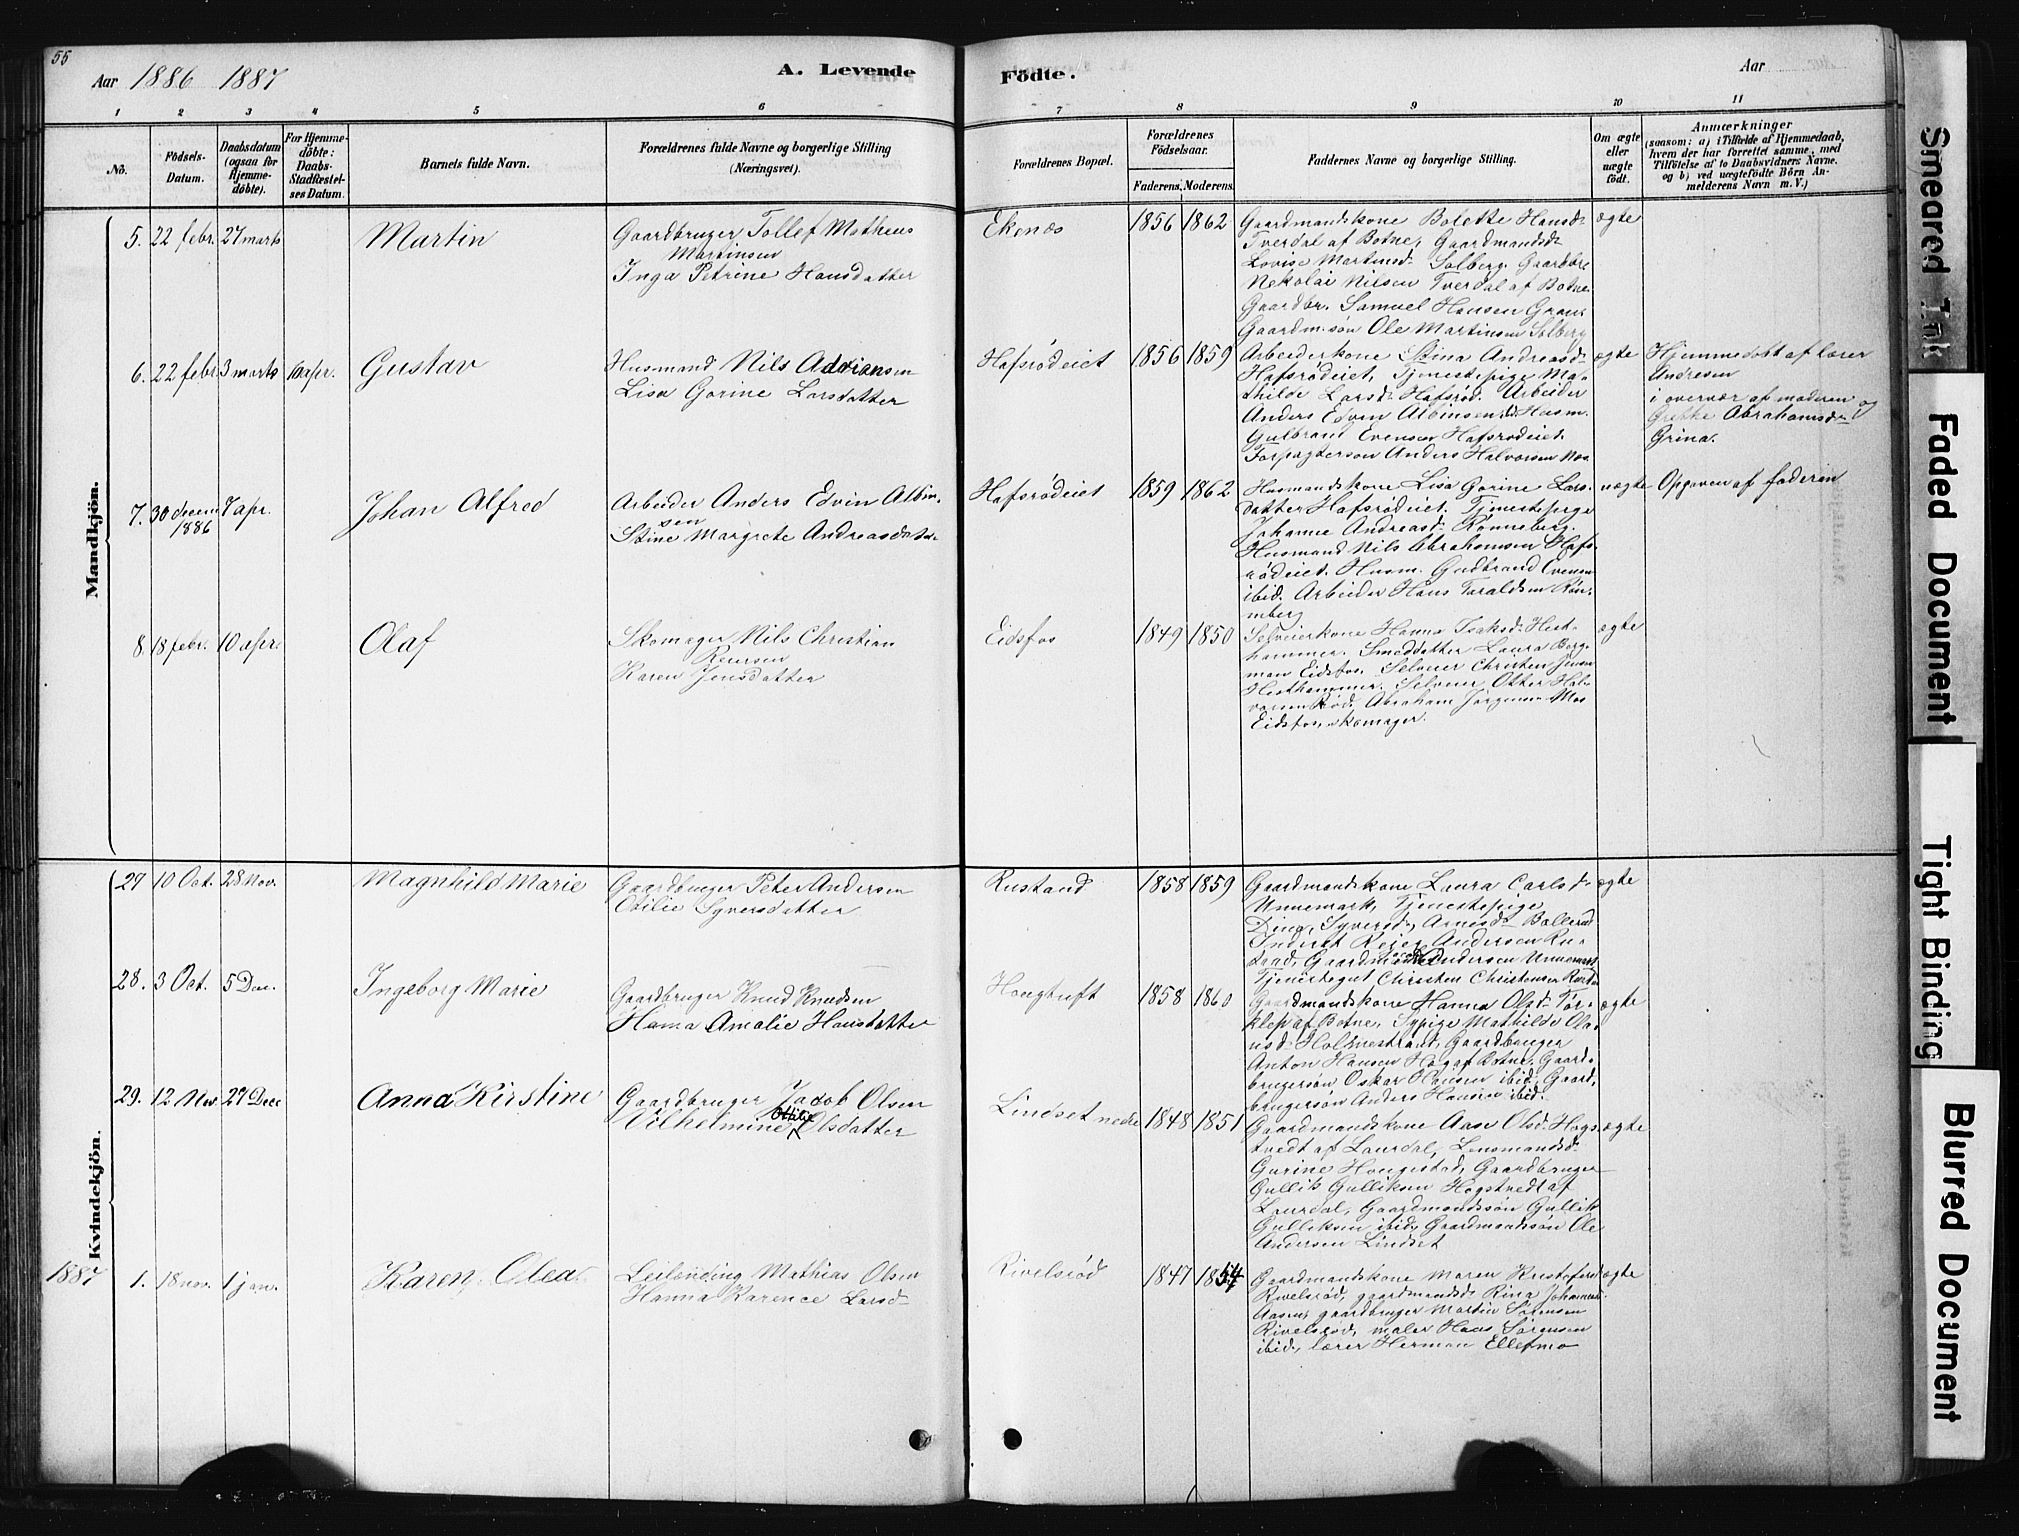 55
Aar 1886 1887
A. Levende
Födte.
Aar
1 2 3 4 5 6 7 8 9 10 11
No.
Födsels-Datum.
Daabsdatum (ogsaa for Hjemme-döbte).
For Hjemme-döbte: Daabs-Stadfæstel-ses Datum.
Barnets fulde Navn.
Forældrenes fulde Navne og borgerlige Stilling
(Næringsvei).
Forældrenes Bopæl.
Forældrenes Födselsaar.
Faderens. Moderens.
Faddernes Navne og borgerlige Stilling.
Om ægte eller uægte födt.
Anmærkninger
(saasom: a) i Tilfælde af Hjemmedaab,
hvem der har forrettet samme, med
Tilföielse af to Daabsvidners Navne.
og b) ved uægtefödte Börn An-
melderens Navn m. V.)
Mandkjön.
5. 22 febr. 27 marts
Martin
Gaardbruger Tollef Matheus
Martinsen
Inga Petrine Hansdatter
Ekenæs
1856 1862
Gaardmandskone Bolette Hansd.
Tverdal af Botne, Gaardmandsd.
Lovise Martinsd. Solberg. Gaardbr.
Nekolai Nilsen Tverdal af Botne.
Gaardbr. Samuel Hansen
Gaardm.søn Ole Martinsen Solberg
ægte
6. 22 febr. 3 marts 10 apr.
Gustav
Husmand Nils Adriansen
Lisa Gorine Larsdatter
Hafsrödeiet
1856 1859
Arbeiderkone Stina Andreasd.
Hafsrödeiet, Tjenestepige Ma-
thilde Larsd. Hafsröd. Arbeider
Anders Edvin Albinsen, Husm.
Gulbrand Evensen Hafsrödeiet.
Forpagtersøn Anders Halvorsen Næs
ægte
Hjemmedøbt af lærer
Andresen
i overvær af moderen og
Grethe Abrahamsd.
Grina.
7. 30 decem 1886 7 apr.
Johan Alfred
Arbeider Anders Edvin Albin-
sen
Stine Margrete Andreasdatter
Hafsrödeiet
1859 1862
Husmandskone Lisa Gorine Lars-
datter Hafsrödeiet. Tjenestepige
Johanne Andreasd. Rönneberg.
Husmand Nils Abrahamsen Hafs-
rödeiet. Husm. Gudbrand Evensen
ibid. Arbeider Hans Taraldsen Rön-
neberg
uægte
Opgaven af faderen
8. 18 febr. 10 apr.
Olaf
Skomager Nils Christian
Reiersen
Karen Jensdatter
Eidsfos
1849 1850
Selveierkone Hanna Isaksd. Hest-
hammer. Smeddatter Laura Berg-
man Eidsfos. Selveier Christen Jensen
Hesthammer. Selveier Otter Hal-
vorsen Röd, Abraham Jørgensen Moe
Eidsfos, skomager.
ægte
Kvindekjön.
27 10 Oct. 28 Nov.
Magnhild Marie
Gaardbruger Peter Andersen
Otilie Syversdatter
Rustand
1858 1859
Gaardmandskone Laura Carlsd.
Unnemark, Tjenestepige
Dina Syversd.
Inderst Reier Andersen Ru-
stad, Gaardmand Andersen Unnemark
Tjenestegut Christen Christensen
ægte
28. 3 Oct. 5 Dec.
Ingeborg Marie
Gaardbruger Knud Knudsen
Hanna Amalie Hansdatter
Hougtuft
1858 1860
Gaardmandskone Hanna Olsd. Tor-
klep af Botne, Sypige Mathilde Ola-
usd. Holmestrand, Gaardbruger
Anton Hansen Hag af Botne, Gaard-
brugersøn Oskar Hansen ibid, Gaard-
brugersøn Anders Hansen ibid.
ægte
29. 12 Nov 27 Dece
Anna Kirstine
Gaardbruger Jacob Olsen
Vilhelmine Otilie Olsdatter
Lindset nedre
1848 1851
Gaardmandskone Aase Olsd. Hogs-
tvedt af Laurdal, Lensmandsd.
Gurine Hougestad, Gaardbruger
Gullik Gulliksen Hogstvedt af
Laurdal, Gaardmandssøn Gullik
Gulliksen ibid, Gaardmandssøn Ole
Andersen Lindset
ægte
1887 1. 18 nov. 1 jan.
Karen Olea
Leilending Mathias Olsen
Hanna Karence Larsd.
Rivelsröd
1847 1854
Gaardmandskone Maren Kristofersd
Rivelsröd, gaardmandsd. Rina Johannesd.
Aasen, gaardbruger Martin Sørensen
Rivelsröd, maler Hans Sørensen
ibid, lærer Herman Ellefmo
ægte
Smeared Ink
Faded Document
Tight Binding
Blurred Document